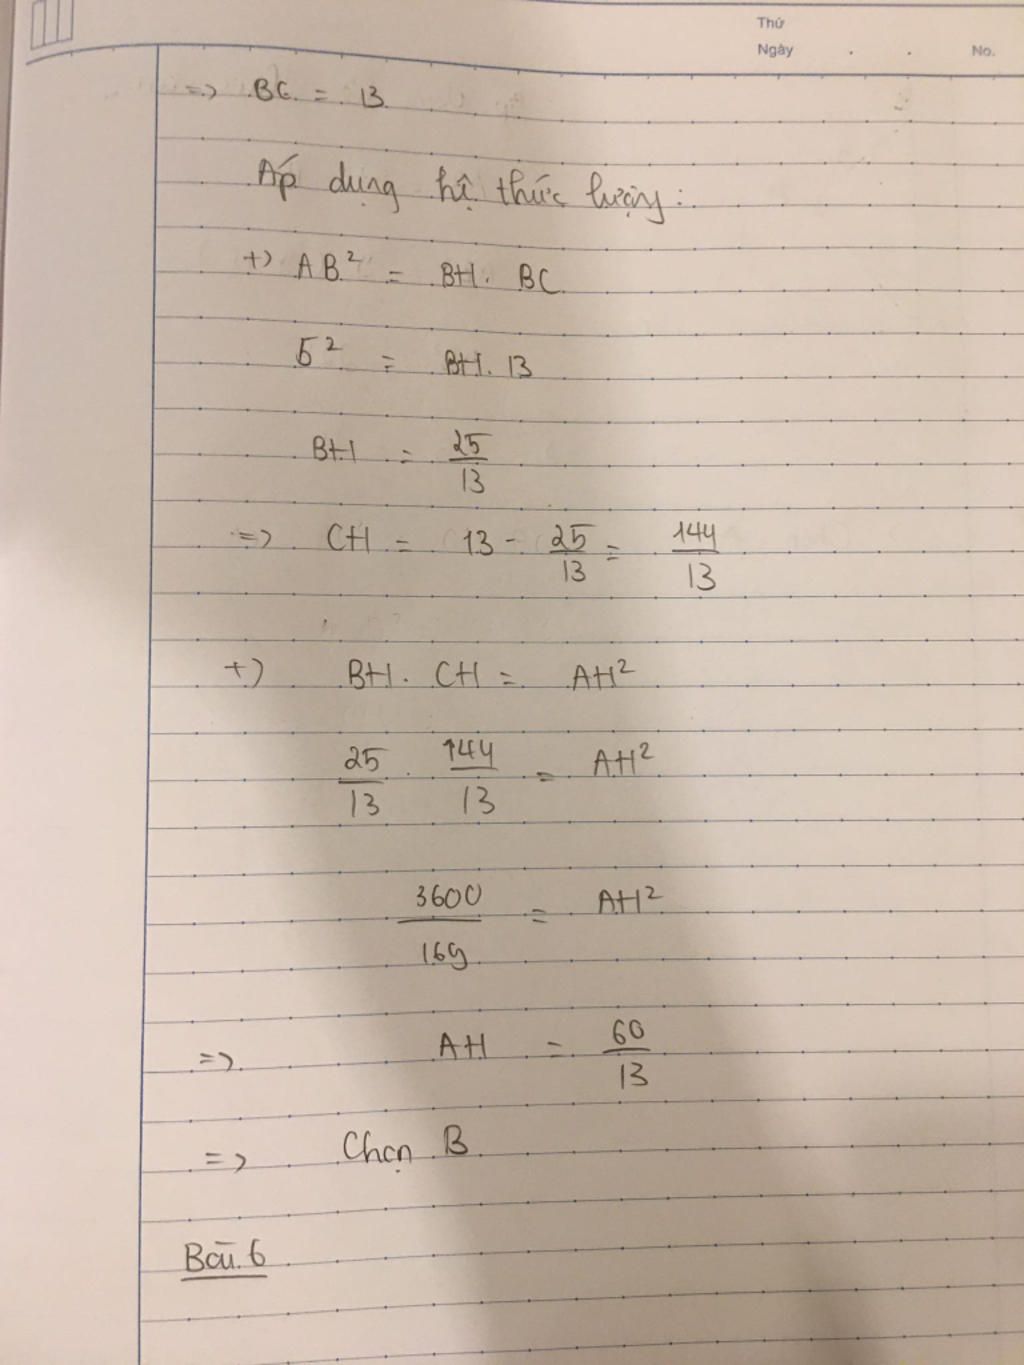 Thứ
Ngày . . No.
=> BC = 13
Áp dụng hệ thức lượng:
+) AB² = BH. BC
5² = BH. 13
BH = 25/13
=> CH = 13 - 25/13 = 144/13
+) BH. CH = AH²
25/13 . 144/13 = AH²
3600/169 = AH²
=> AH = 60/13
=> Chọn B
Bài 6